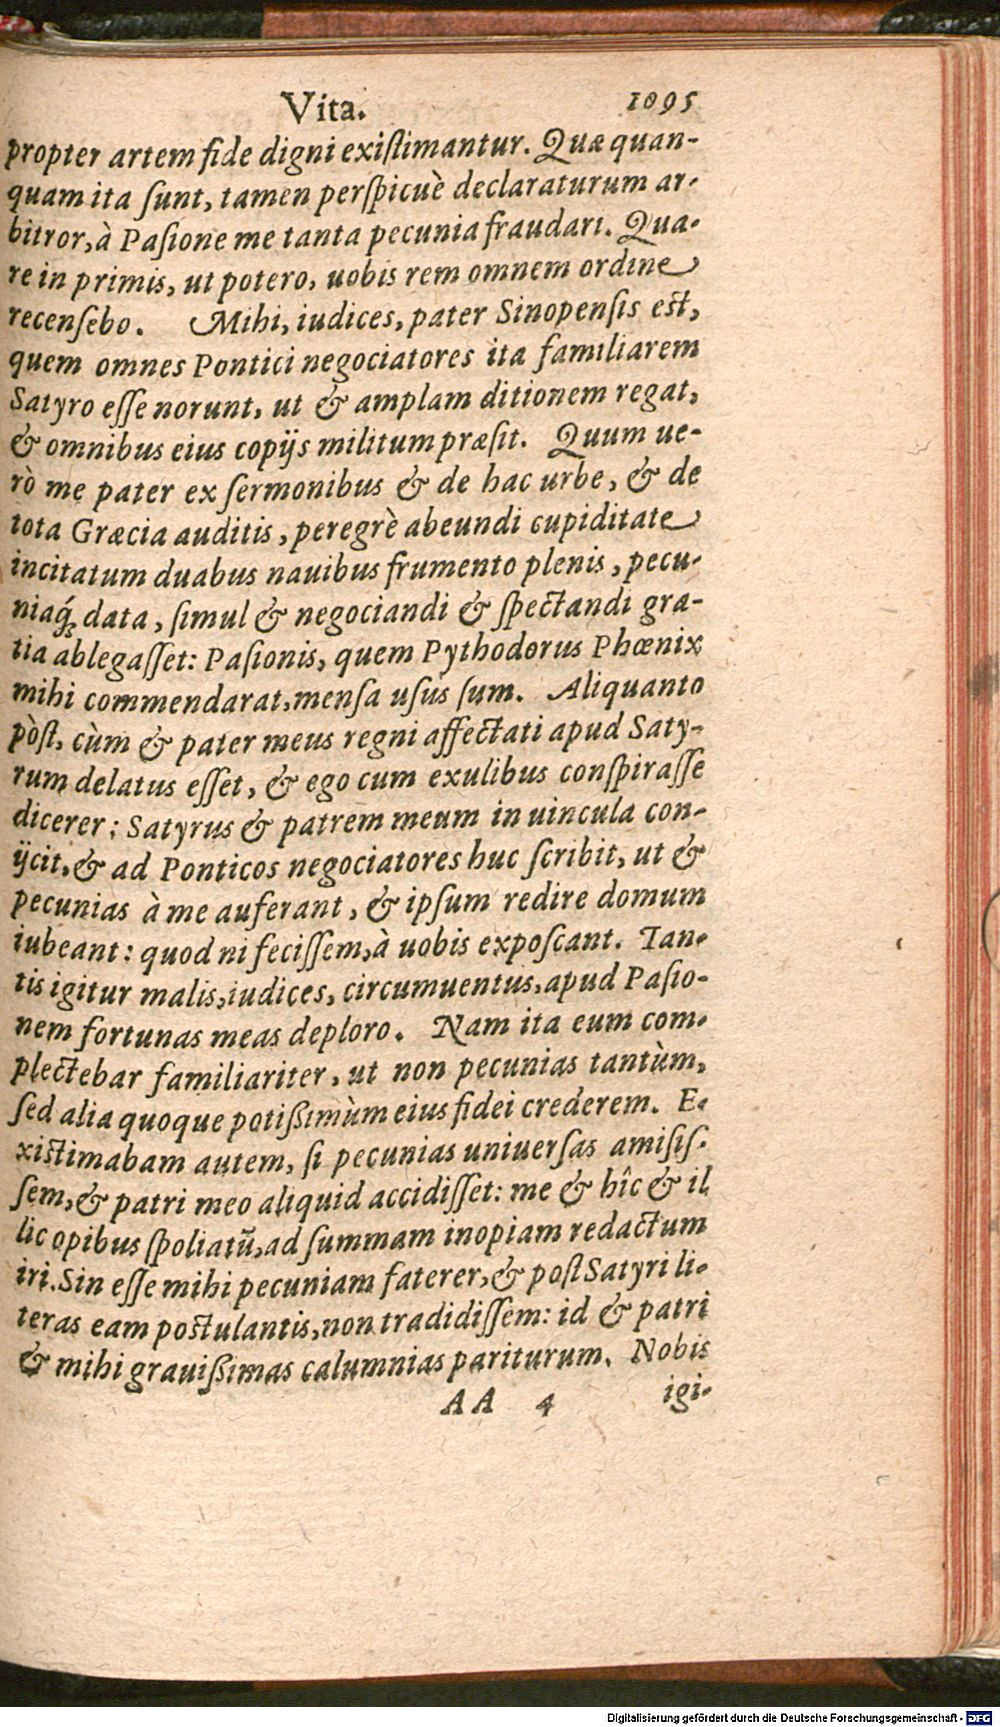 Vita. 1095
propter artem fide digni exiſtimantur. Quæ quan-
quam ita ſunt, tamen perſpicuè declaraturum ar-
bitror, à Paſione me tanta pecunia fraudari. Qua-
re in primis, ut potero, uobis rem omnem ordine
recenſebo. Mihi, iudices, pater Sinopenſis eſt,
quem omnes Pontici negociatores ita familiarem
Satyro eſſe norunt, ut & amplam ditionem regat,
& omnibus eius copijs militum præſit. Quum ue-
rò me pater ex ſermonibus & de hac urbe, & de
tota Græcia auditis, peregrè abeundi cupiditate
incitatum duabus nauibus frumento plenis, pecu-
niaq́; data, ſimul & negociandi & ſpectandi gra-
tia ablegaſſet: Paſionis, quem Pythodorus Phœnix
mihi commendarat, menſa uſus ſum. Aliquanto
pòſt, cùm & pater meus regni affectati apud Saty-
rum delatus eſſet, & ego cum exulibus conſpiraſſe
dicerer: Satyrus & patrem meum in uincula con-
ijcit, & ad Ponticos negociatores huc ſcribit, ut &
pecunias à me auferant, & ipſum redire domum
iubeant: quod ni feciſſem, à uobis expoſcant. Tan-
tis igitur malis, iudices, circumuentus, apud Paſio-
nem fortunas meas deploro. Nam ita eum com-
plectebar familiariter, ut non pecunias tantùm,
ſed alia quoque potißimùm eius fidei crederem. E-
xiſtimabam autem, ſi pecunias uniuerſas amiſiſ-
ſem, & patri meo aliquid accidiſſet: me & hîc & il
lic opibus ſpoliatũ, ad ſummam inopiam redactum
iri. Sin eſſe mihi pecuniam faterer, & poſt Satyri li-
teras eam poſtulantis, non tradidiſſem: id & patri
& mihi grauißimas calumnias pariturum. Nobis
AA 4 igi-
Digitalisierung gefördert durch die Deutsche Forschungsgemeinschaft - DFG